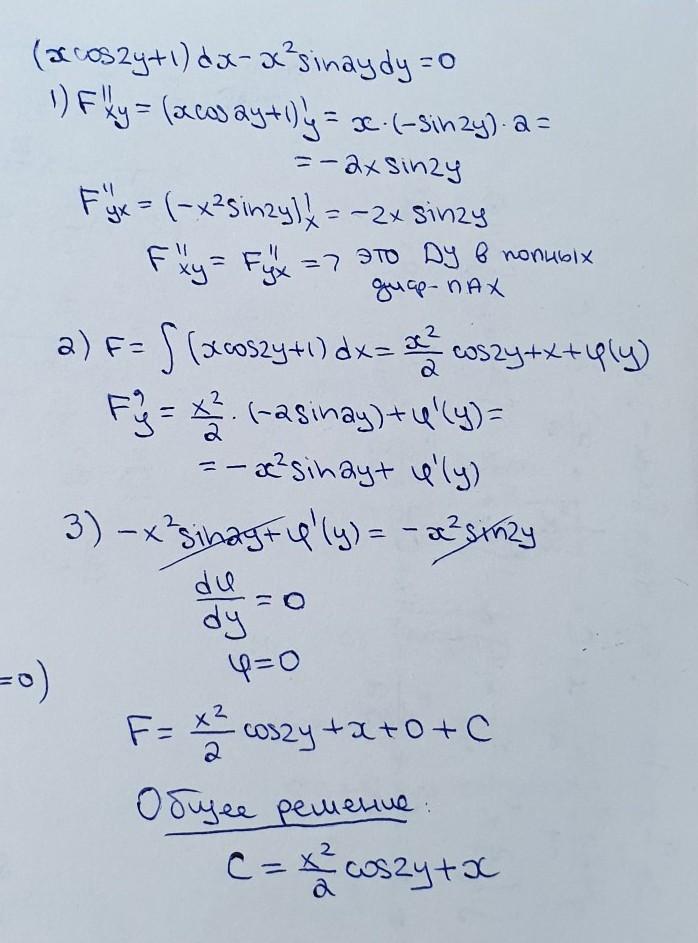 (xcos2y+1)dx-x²sin2ydy=0
1) F''xy = (xcos2y+1)'y = x·(-sin2y)·2=
=-2xsin2y
F''yx = (-x²sin2y)'x = -2x sin2y
F''xy = F''yx => это ДУ в полных
диф-лАХ
2) F = ∫(xcos2y+1)dx = x²/2 cos2y+x+φ(y)
F'y = x²/2 · (-2sin2y)+φ'(y)=
= -x²sin2y+ φ'(y)
3) -x²sin2y+φ'(y) = -x²sin2y
dφ/dy = 0
φ=0
=0)
F= x²/2 cos2y+x+0+C
Общее решение:
C = x²/2 cos2y+x